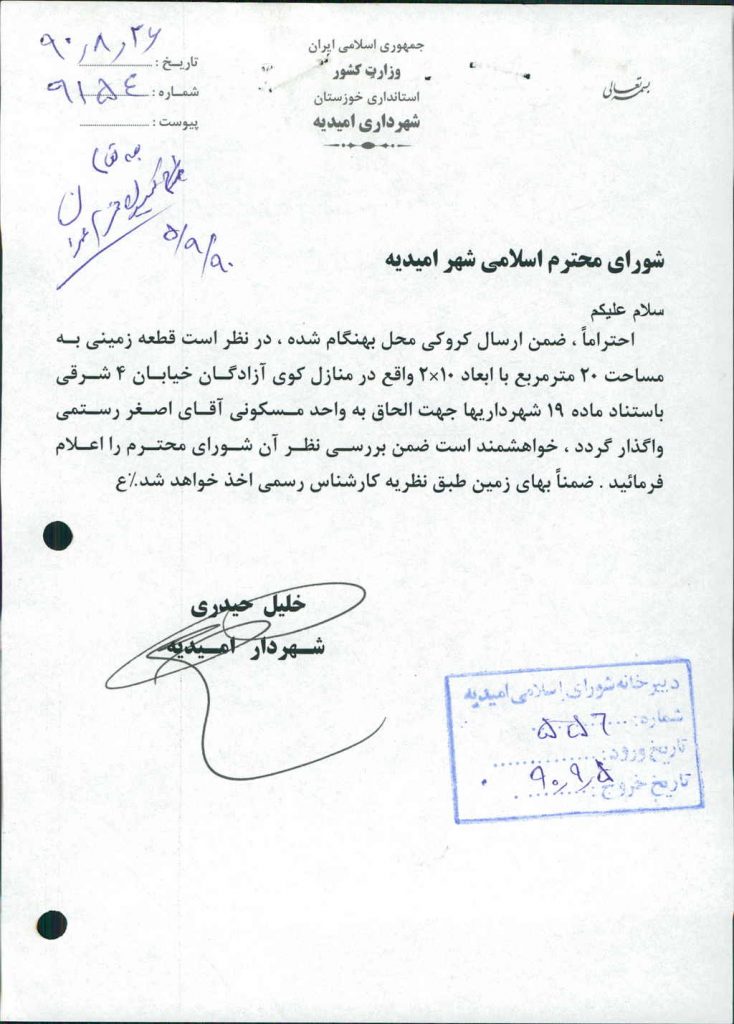 بسمه تعالی
جمهوری اسلامی ایران
وزارت کشور
استانداری خوزستان
شهرداری امیدیه
تاریخ : ۹۰٫۸٫۲۶
شماره : ۹۱۵۴
پیوست :
۵/۹/۹۰
شورای محترم اسلامی شهر امیدیه
سلام علیکم
احتراماً ، ضمن ارسال کروکی محل بهنگام شده ، در نظر است قطعه زمینی به
مساحت ۲۰ مترمربع با ابعاد ۱۰×۲ واقع در منازل کوی آزادگان خیابان ۴ شرقی
باستناد ماده ۱۹ شهرداریها جهت الحاق به واحد مسکونی آقای اصغر رستمی
واگذار گردد ، خواهشمند است ضمن بررسی نظر آن شورای محترم را اعلام
فرمائید . ضمناً بهای زمین طبق نظریه کارشناس رسمی اخذ خواهد شد.٪ع
خلیل حیدری
شهردار امیدیه
دبیرخانه شورای اسلامی امیدیه
شماره: ۵۵۶
تاریخ ورود:
تاریخ خروج: ۹۰٫۹٫۵